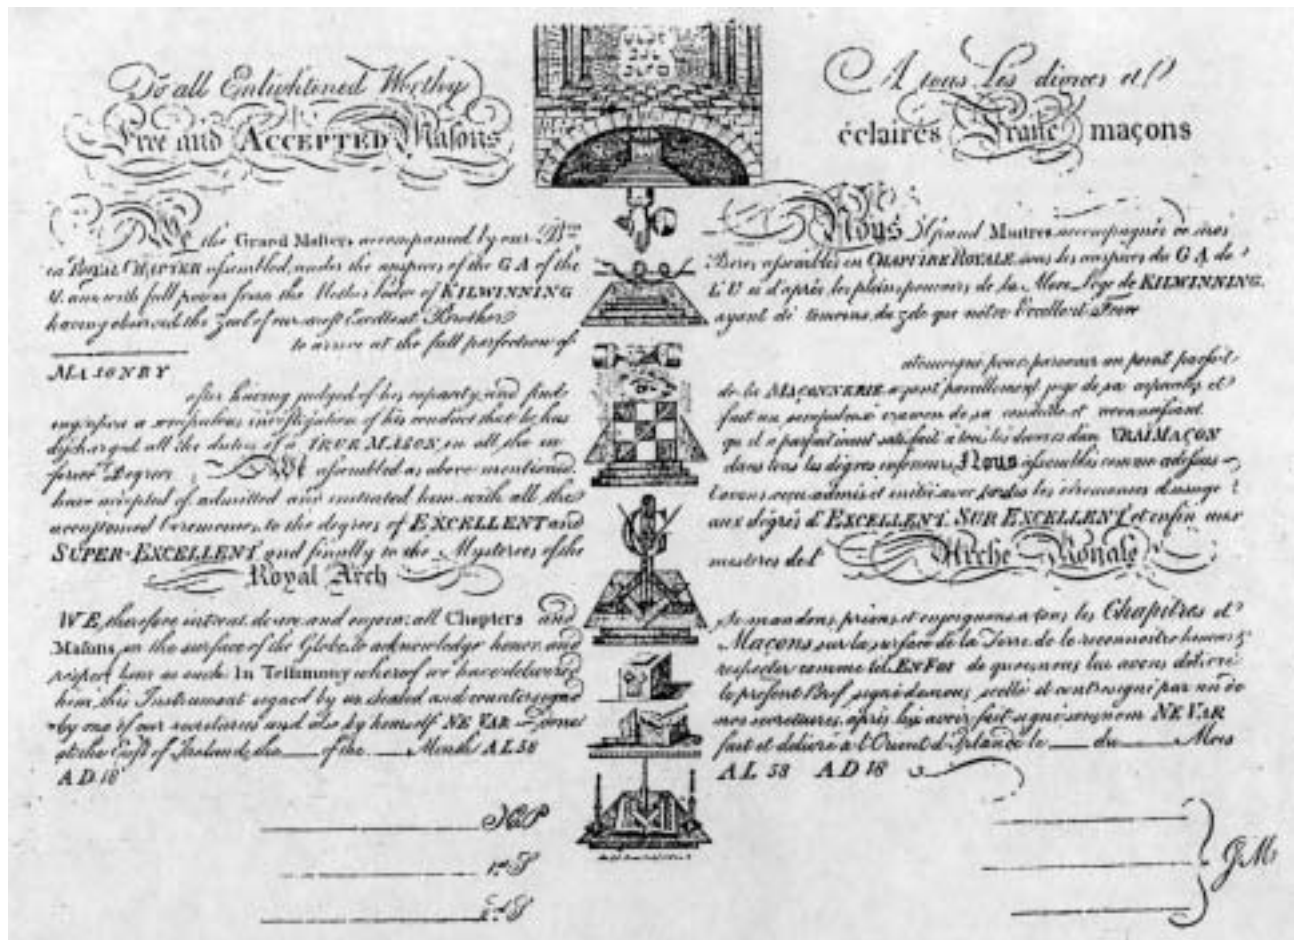 To all Enlightened Worthy
Free and ACCEPTED Masons
WE the Grand Masters accompanied by our Bren
in ROYAL CHAPTER assembled, under the auspices of the G A of the
U. and with full powers from the Mother Lodge of KILWINNING
having observed the Zeal of our most Excellent Brother
to arrive at the full perfection of
MASONRY
after having judged of his capacity, and
a scrupulous investigation of his conduct that he has
discharged all the duties of a TRUE MASON, in all the in
ferior Degrees WE assembled as above mentioned.
have accepted of admitted and initiated him with all the
accustomed Ceremonies, to the degrees of EXCELLENT and
SUPER-EXCELLENT and finally to the Mysteries of the
Royal Arch
WE, therefore intreat, desire, and enjoin, all Chapters and
Masons, on the surface of the Globe, to acknowledge honor, and
respect him as such. In Testimony whereof we have delivered
him, this Instrument signed by us Sealed and countersigned
by one of our secretaries and also by himself NE VAR done
at the East of Ireland, the of the Month A L 58
A D 18
1st S
2d S
A tous Les divers et
éclairés Franc maçons
Nous Grand Maitres, accompagnés de nos
Freres assemblés en CHAPITRE ROYALE sous les auspices du G A de
L'U et d'après les pleins pouvoirs de la Mere Loge de KILWINNING,
ayant été temoins, du zele que notre Excellent Frere
temoigne pour parvenir au point parfait
de la MAÇONNERIE ayant pareillement jugé de sa capacité, et
fait un scrupuleux examen de sa conduite et reconnaissant
qu il a parfaitement satisfait à tous les devoirs d'un VRAI MAÇON
dans tous les dégres inferieurs, Nous assemblés comme adessus
l'avons reçu admis et initié avec toutes les cérémonies d'usage
aux dégrés d'EXCELLENT, SUR EXCELLENT et enfin aux
misteres de l' Arche Royale
mandons, prions et enjoignons a tous les Chapitres et
Maçons sur la surface de la Terre, de le reconnoitre honorer &
respecter comme tel. EN FOI de quoi nous lui avons délivré
le présent Bref, signé de nous, scellé et contresigné par un de
nos secretaires, après lui avoir fait signé son nom NE VAR
fait et délivré à l'Orient d'Irlande le du Mois
A L 58 A D 18
G M